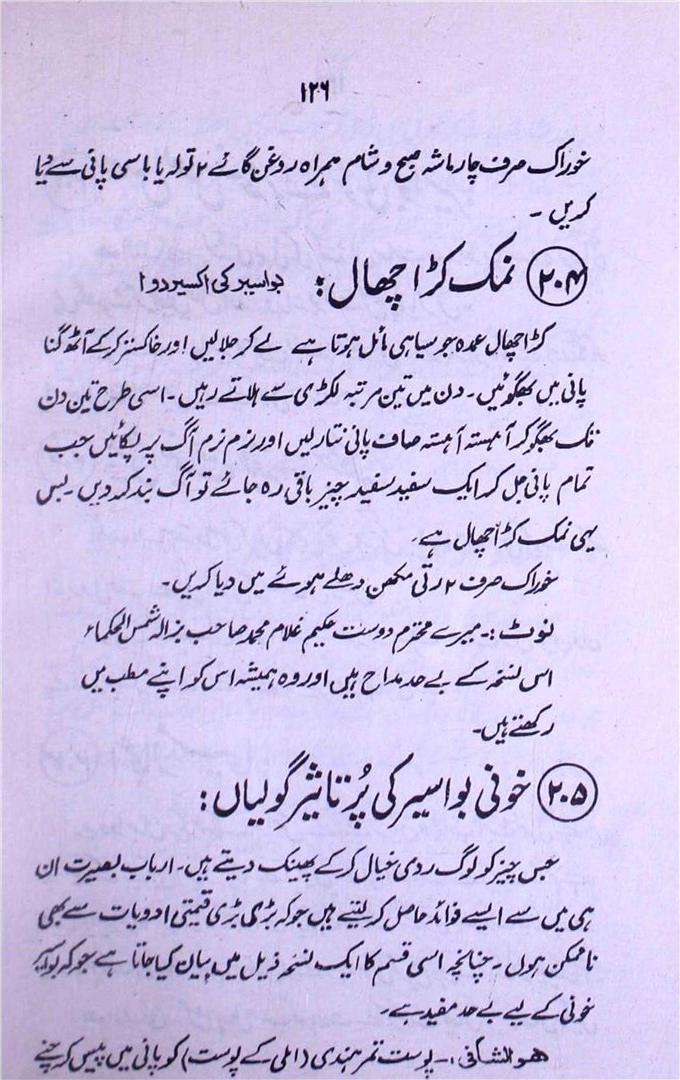 ۱۲۶
خوراک صرف چار ماشہ صبح و شام ہمراہ روغن گائے ۲ تولہ یا باسی پانی سے دیا
کریں ۔
۲۰۴ نمک کڑا چھال : بواسیر کی اکسیر دوا
کڑا چھال عمدہ جو سیاہی مائل ہوتا ہے لے کر جلالیں اور خاکستر کرکے آٹھ گنا
پانی میں بھگوئیں ۔ دن میں تین مرتبہ لکڑی سے ہلاتے رہیں ۔ اسی طرح تین دن
تک بھگو کر آہستہ آہستہ صاف پانی نتارلیں اور نرم نرم آگ پر پکائیں جب
تمام پانی جل کر ایک سفید سفید چیز باقی رہ جائے تو آگ بند کردیں ۔ بس
یہی نمک کڑا چھال ہے ۔
خوراک صرف ۲ رتی مکھن دھلے ہوئے میں دیا کریں ۔
نوٹ :۔ میرے محترم دوست حکیم غلام محمد صاحب بزالہ شمس الحکماء
اس نسخہ کے بے حد مداح ہیں اور وہ ہمیشہ اس کو اپنے مطب میں
رکھتے ہیں ۔
۲۰۵ خونی بواسیر کی پُرتاثیر گولیاں :
جس چیز کو لوگ ردی خیال کرکے پھینک دیتے ہیں ۔ ارباب بصیرت ان
ہی میں سے ایسے فوائد حاصل کرلیتے ہیں جو کہ بڑی بڑی قیمتی ادویات سے بھی
ناممکن ہوں ۔ چنانچہ اسی قسم کا ایک نسخہ ذیل میں بیان کیا جاتا ہے جو کہ بواسیر
خونی کے لیے بے حد مفید ہے ۔
ھوالشافی :۔ پوست تمر ہندی (املی کے پوست) کو پانی میں پیس کر چنے